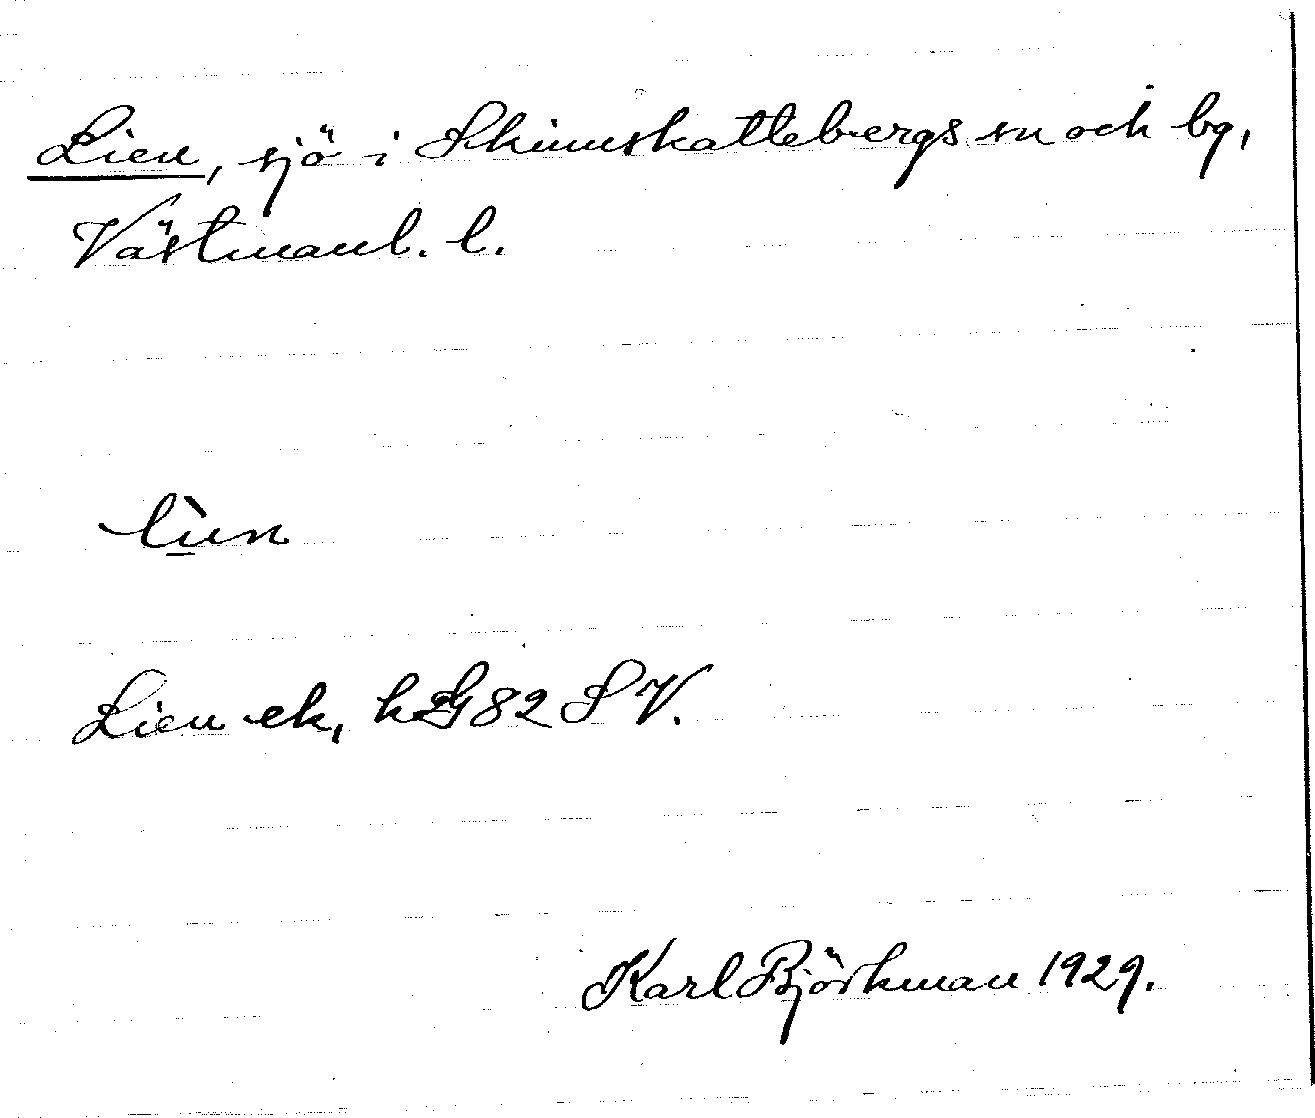 Lien, sjö i Skinnskattebergs sn och bg,
Västmanl. l.
lìen
Lien ek, hLG82 SV.
Karl Björkman 1929.